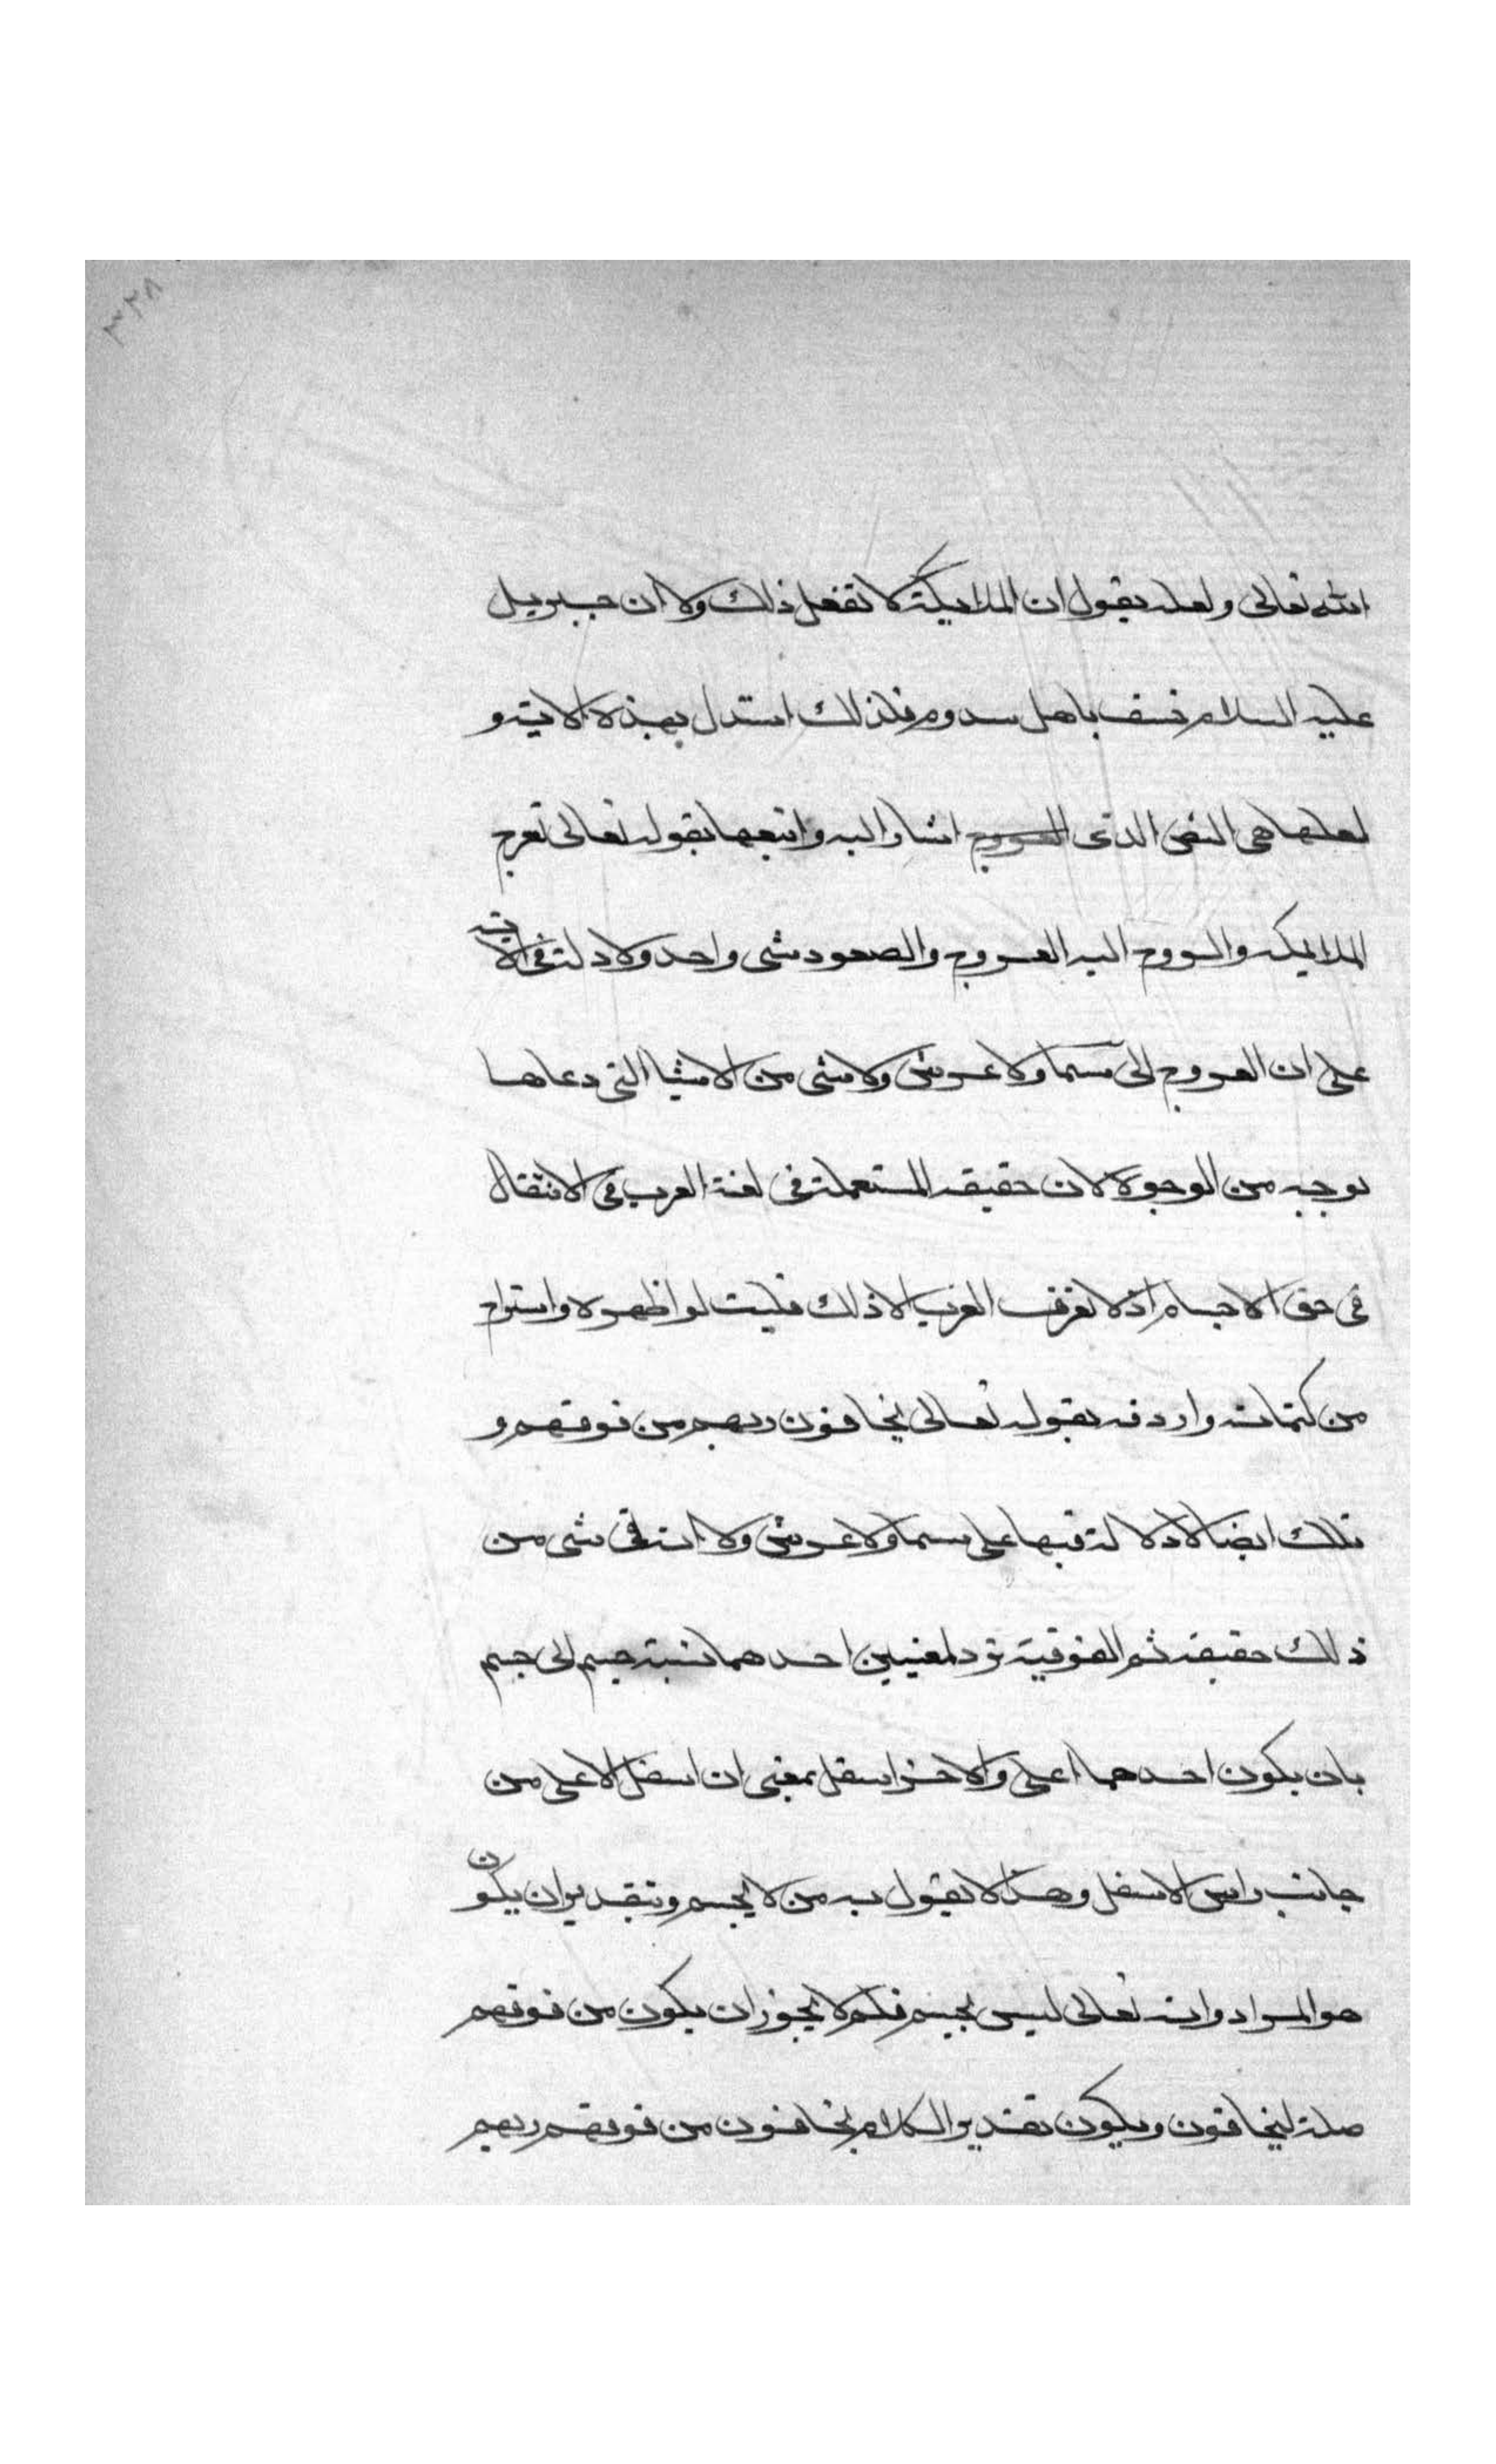 ٣٢٨
الله تعالى ولعله يقول ان الملايكة لا تفعل ذلك ولا ان جبريل
عليه السلام خسف باهل سدوم فلذلك استدل بهذه الاية و
لعلها هى النص الذى العروج اشار اليه واتبعها بقوله تعالى تعرج
الملايكه والروح اليه العروج والصعود شى واحد ولا دلة فى الاية
على ان العروج الى سما ولا عرش ولا شى من الاشيا التى دعاها
بوجه من الوجوه لان حقيقه المستعملة فى لغة العرب فى الانتقال
فى حق الاجسام اذ لا تعرف العرب الا ذلك فليت لو اظهره واستراح
من كتمانه واردفه بقوله تعالى يخافون ربهم من فوقهم و
تلك ايضا لا دلالة فيها على سما ولا عرش ولا انه فى شى من
ذلك حقيقة ثم الفوقية ترد لمعنيين احدهما نسبة جسم الى جسم
بان يكون احدهما اعلى والاخر اسفل بمعنى ان اسفل الاعلى من
جانب راس الاسفل وهذا لا يقول به من لا يجسم وبتقدير ان يكون
هو المراد وانه تعالى ليس بجسم فلم لا يجوز ان يكون من فوقهم
صلة ليخافون ويكون تقدير الكلام يخافون من فوقهم ربهم